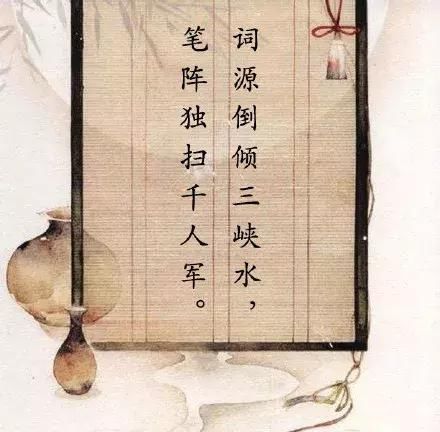 词源倒倾三峡水，
笔阵独扫千人军。